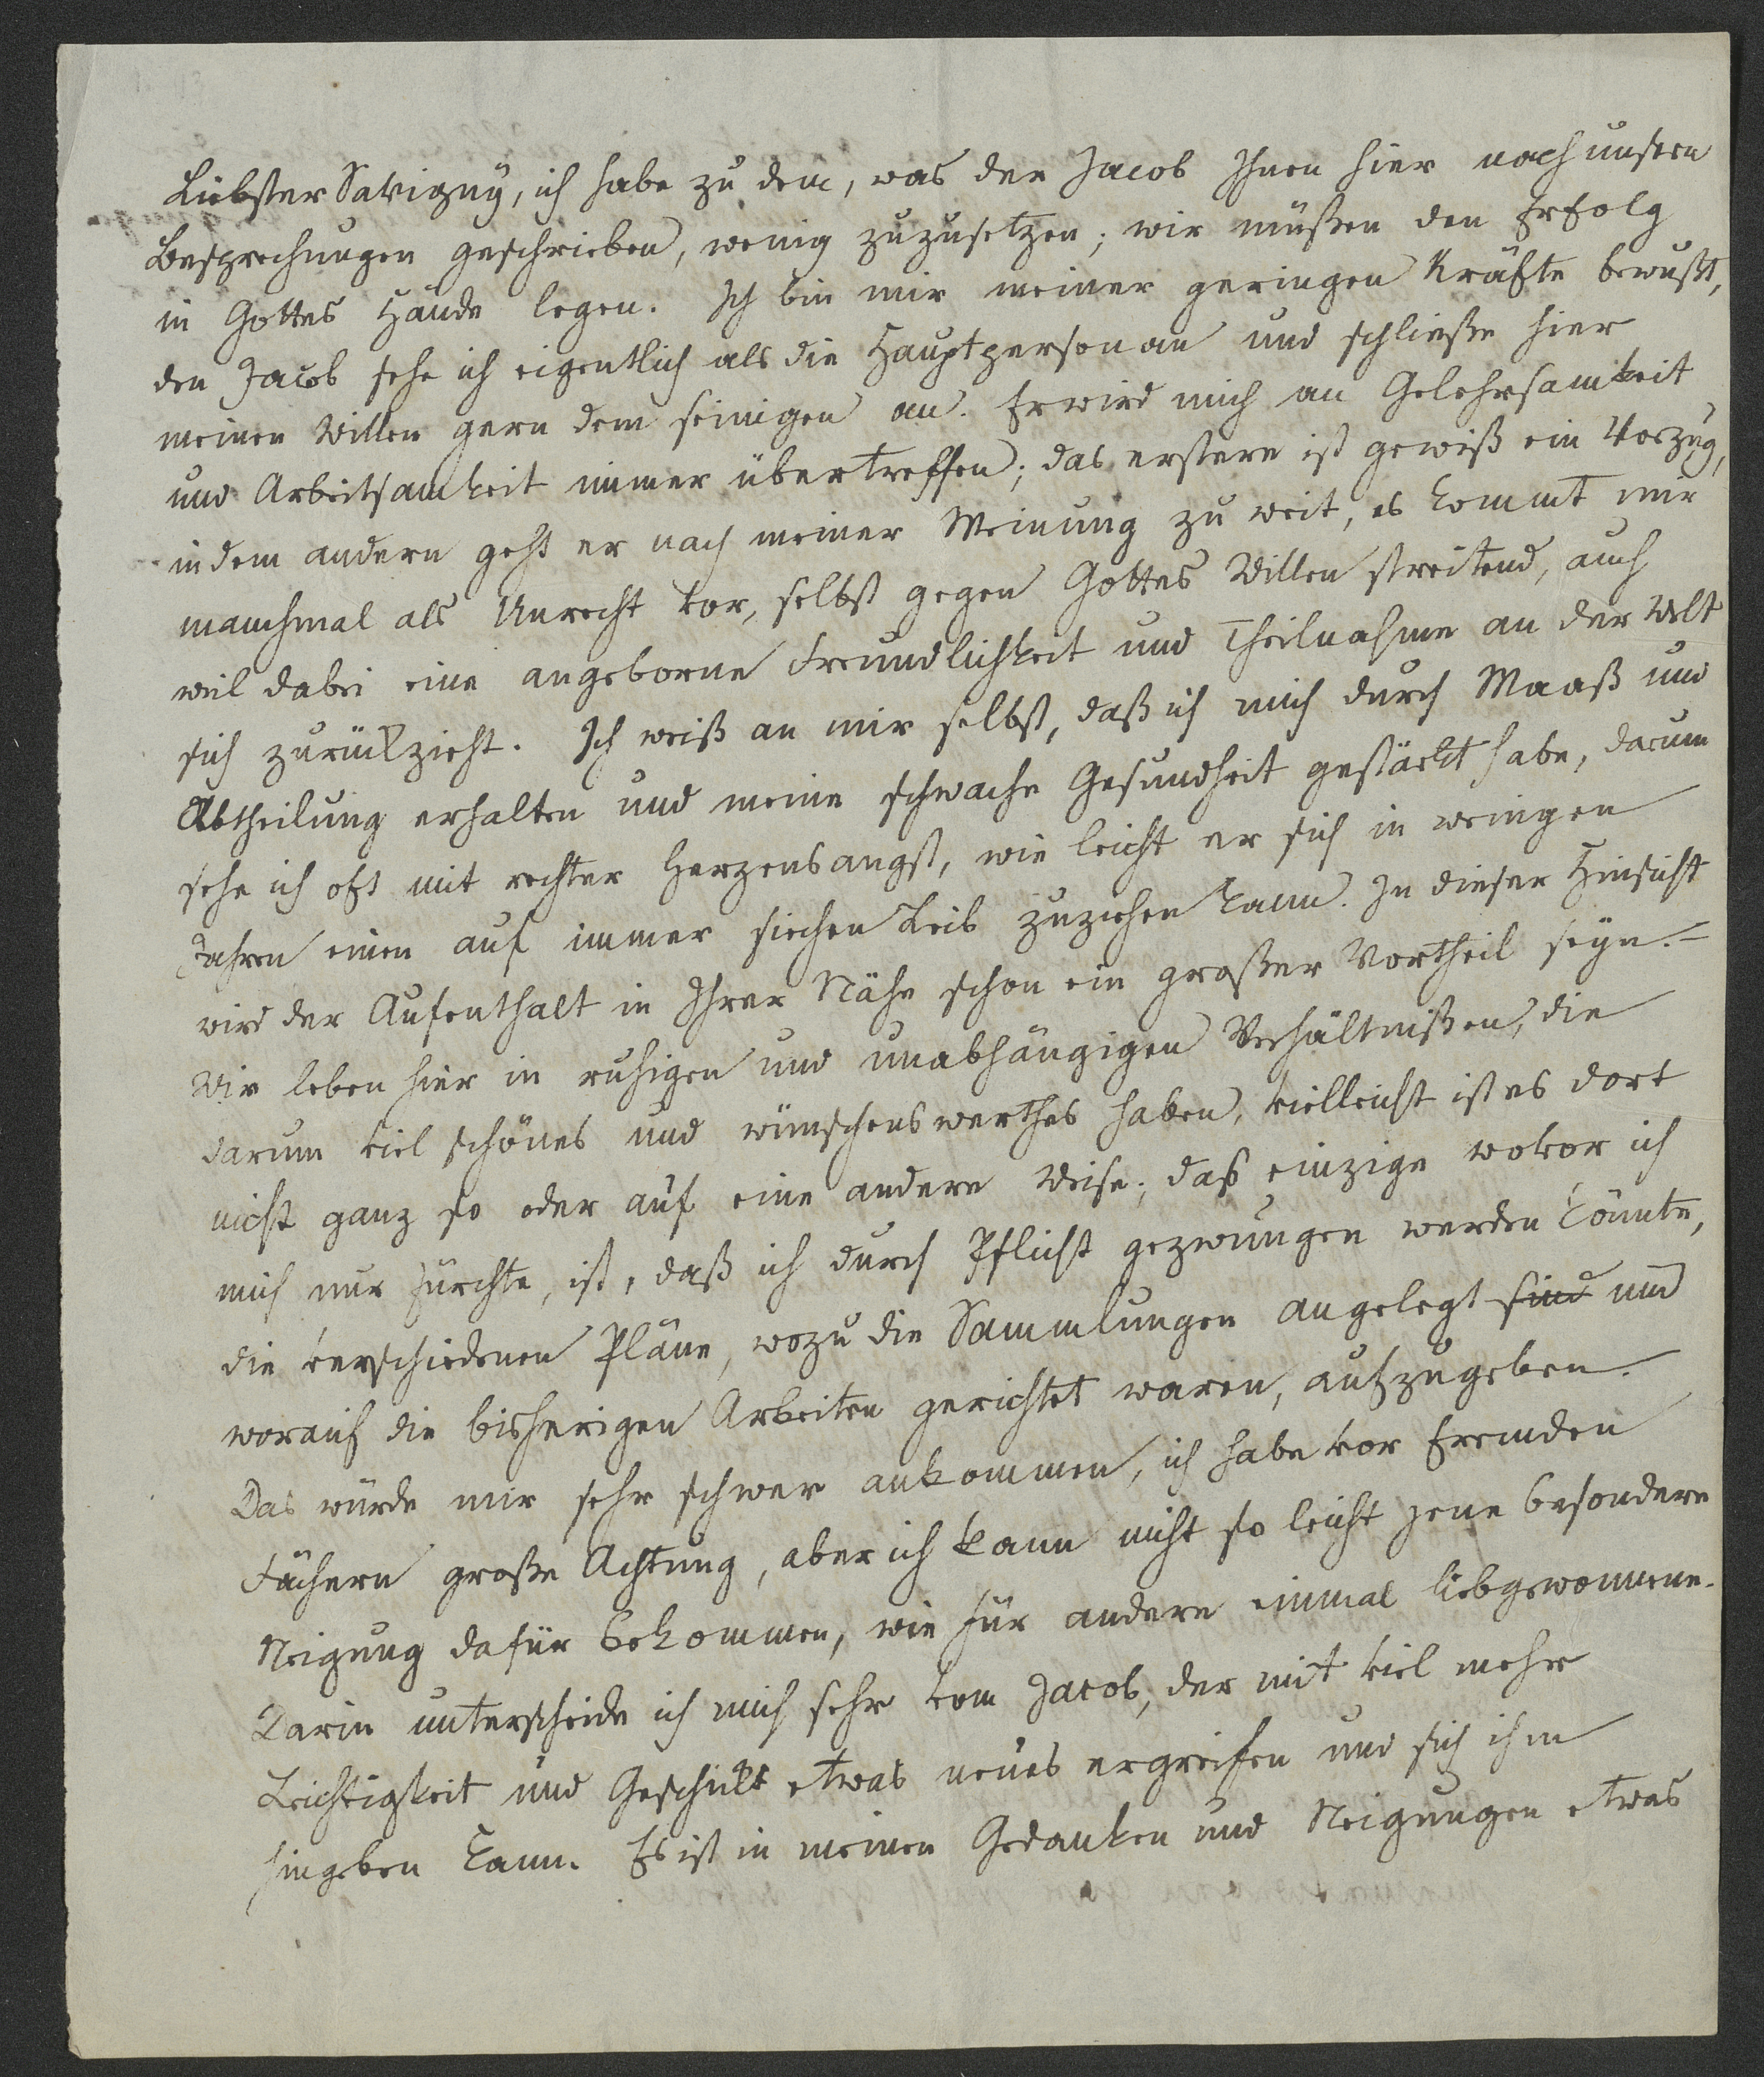 Liebster Savigny, ich habe zu dem, was der Jacob Ihnen hier nach unsern
Besprechungen geschrieben, wenig zuzusetzen; wir müßen den Erfolg
in Gottes Hände legen. Ich bin mir meiner geringen Kräfte bewußt,
den Jacob sehe ich eigentlich als die Hauptperson an und schließe hier
meinen Willen gern dem seinigen an. Er wird mich an Gelehrsamkeit
und Arbeitsamkeit immer übertreffen; das erstere ist gewiß ein Vorzug,
in dem andern geht er nach meiner Meinung zu weit, es kommt mir
manchmal als Unrecht vor, selbst gegen Gottes Willen streitend, auch
weil dabei eine angeborne Freundlichkeit und Theilnahme an der Welt
sich zurückzieht. Ich weiß an mir selbst, daß ich mich durch Maaß und
Abtheilung erhalten und meine schwache Gesundheit gestärkt habe, darum
sehe ich oft mit rechter Herzensangst, wie leicht er sich in wenigen
Jahren einen auf immer siechen Leib zuziehen kann. In dieser Hinsicht
wird der Aufenthalt in Ihrer Nähe schon ein großer Vortheil seyn. –
Wir leben hier in ruhigen und unabhängigen Verhältnißen, die
darum viel schönes und wünschenswerthes haben, vielleicht ist es dort
nicht ganz so oder auf eine andere Weise; daß einzige wovor ich
mich nur fürchte, ist, daß ich durch Pflicht gezwungen werden könnte,
die verschiedenen Pläne, wozu die Sammlungen angelegt sind und
worauf die bisherigen Arbeiten gerichtet waren, aufzugeben.
Das würde mir sehr schwer ankommen, ich habe vor fremden
Fächern große Achtung, aber ich kann nicht so leicht jene besondere
Neigung dafür bekommen, wie für andere einmal liebgewonnene.
Darin unterscheide ich mich sehr vom Jacob, der mit viel mehr
Leichtigkeit und Geschick etwas neues ergreifen und sich ihm
hingeben kann. Es ist in meinen Gedanken und Neigungen etwas